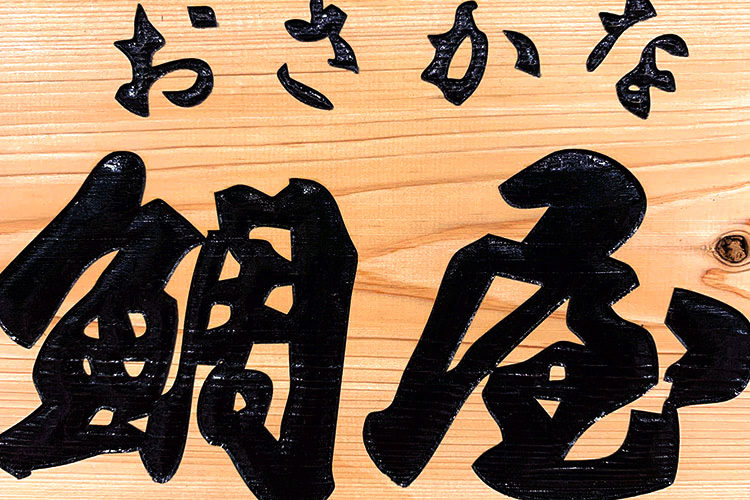 おさかな
鯛庵